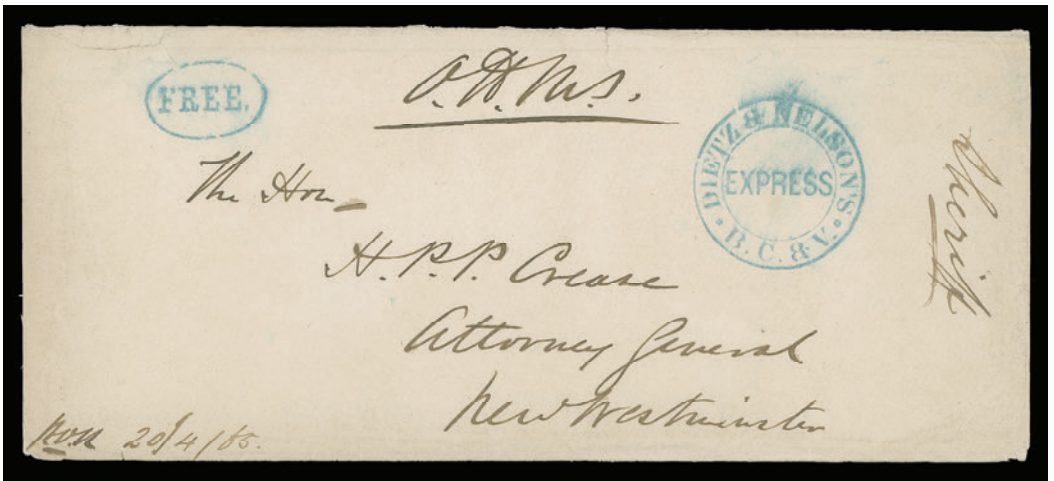 FREE.
O.H.M.S.
DIETZ & NELSON'S
EXPRESS
B.C. & V.
The Hon
H.P.P. Crease
Attorney General
New Westminster
Sheriff
20/4/65.